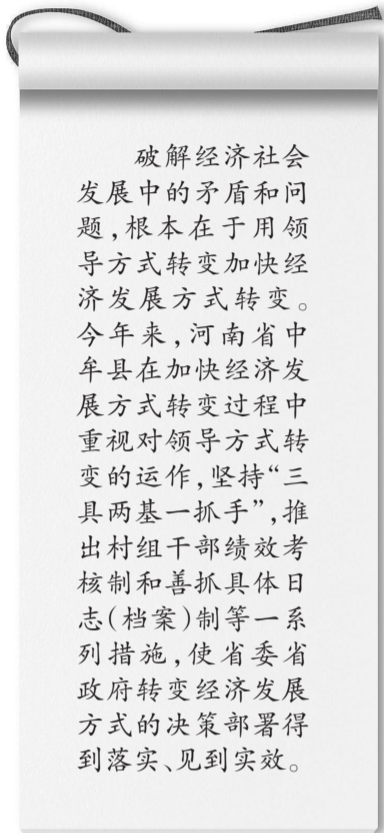 破解经济社会
发展中的矛盾和问
题,根本在于用领
导方式转变加快经
济发展方式转变。
今年来,河南省中
牟县在加快经济发
展方式转变过程中
重视对领导方式转
变的运作,坚持“三
具两基一抓手”,推
出村组干部绩效考
核制和善抓具体日
志(档案)制等一系
列措施,使省委省
政府转变经济发展
方式的决策部署得
到落实、见到实效。